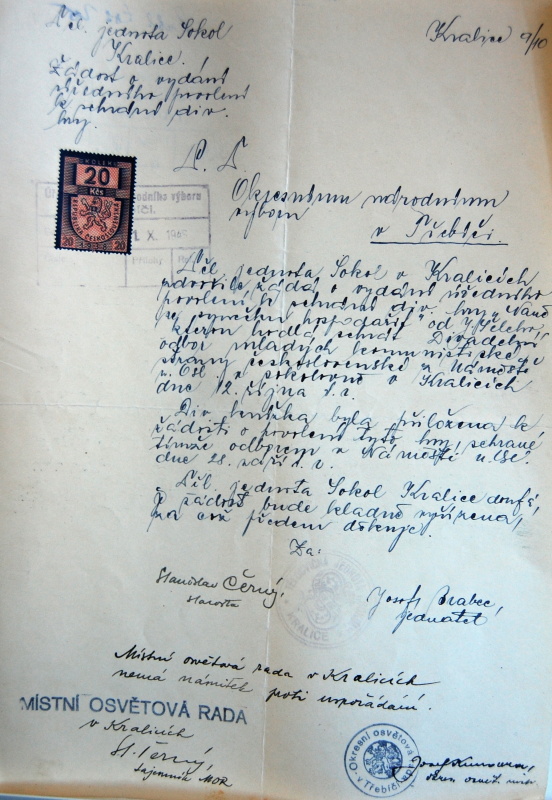 Těl. jednota Sokol
Kralice.
Žádost o vydání
úředního povolení
k sehrání div.
hry.
Kralice 9/10
KOLEK
20
Kčs
REPUBLIKA ČESKOSLOVENSKÁ
20 20
národního výboru
X. 1946
Okresnímu národnímu
výboru
v Třebíči.
Těl. jednota Sokol v Kralicích
zdvořile žádá o vydání úředního
povolení k sehrání div. hry
hospodaří" od
kterou hodlá sehrát Divadelní
odbor mladých komunistické
strany československé z Náměště
n. Osl. v sokolovně v Kralicích
dne 12. října t. r.
Div. knížka byla přiložena k
žádosti o povolení této hry, sehrané
tímže odborem v Náměšti n. Osl.
dne 28. září t. r.
Těl. jednota Sokol Kralice doufá,
že žádost bude kladně vyřízena,
za což předem děkuje.
Za:
Stanislav Černý,
starosta
KRALICE
Josef Brabec,
jednatel
Místní osvětová rada v Kralicích
nemá námitek proti uspořádání.
MÍSTNÍ OSVĚTOVÁ RADA
v Kralicích
St. Černý,
tajemník MOR
Okresní osvětová
v Třebíči
Josef
okres. osvět.